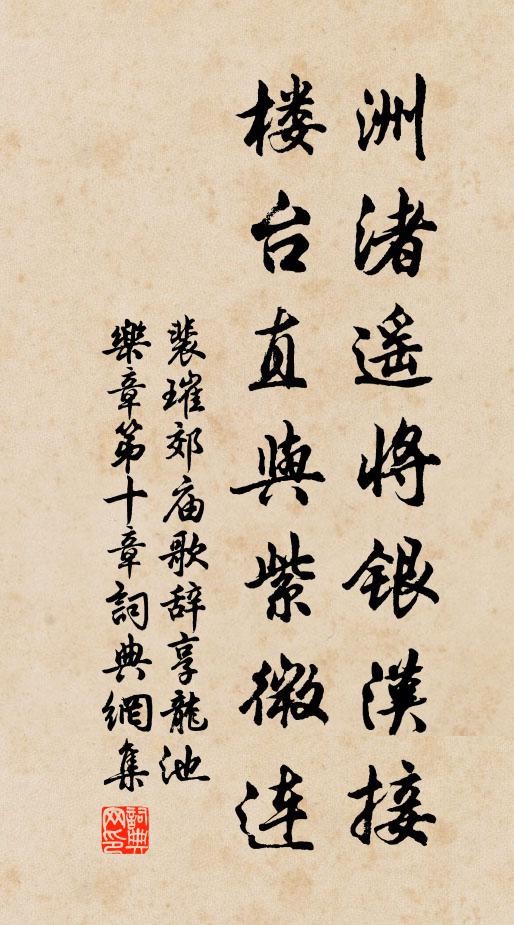 洲渚遥将银汉接
楼台直与紫微连
裴璀郊庙歌辞享龍池
樂章第十章詞典網集
詞典网印